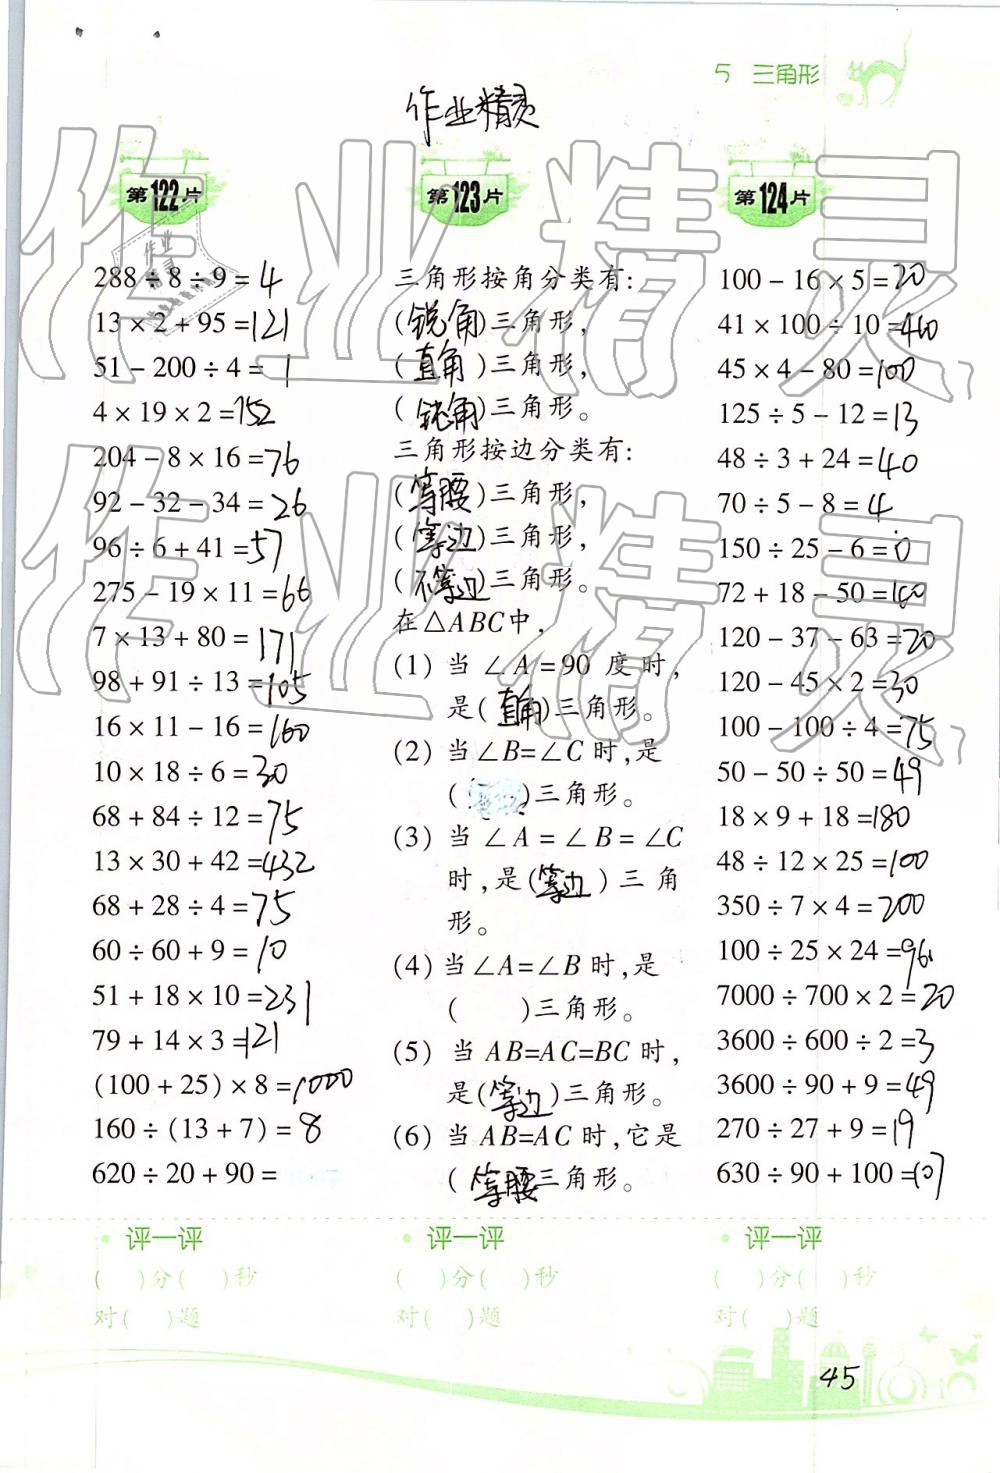 5 三角形
作业精灵
第122片
288÷8÷9=4
13×2+95=121
51-200÷4=1
4×19×2=152
204-8×16=76
92-32-34=26
96÷6+41=57
275-19×11=66
7×13+80=171
98+91÷13=105
16×11-16=160
10×18÷6=30
68+84÷12=75
13×30+42=432
68+28÷4=75
60÷60+9=10
51+18×10=231
79+14×3=121
(100+25)×8=1000
160÷(13+7)=8
620÷20+90=
评一评
( )分( )秒
对( )题
第123片
三角形按角分类有:
(锐角)三角形,
(直角)三角形,
(钝角)三角形。
三角形按边分类有:
(等腰)三角形,
(等边)三角形,
(不等边)三角形。
在△ABC中,
(1) 当∠A=90度时,
是(直角)三角形。
(2) 当∠B=∠C时,是
( )三角形。
(3) 当∠A=∠B=∠C
时,是(等边)三角
形。
(4) 当∠A=∠B时,是
( )三角形。
(5) 当AB=AC=BC时,
是(等边)三角形。
(6) 当AB=AC时,它是
(等腰三角形。
评一评
( )分( )秒
对( )题
第124片
100-16×5=20
41×100÷10=410
45×4-80=100
125÷5-12=13
48÷3+24=40
70÷5-8=4
150÷25-6=0
72+18-50=140
120-37-63=20
120-45×2=30
100-100÷4=75
50-50÷50=49
18×9+18=180
48÷12×25=100
350÷7×4=200
100÷25×24=96
7000÷700×2=20
3600÷600÷2=3
3600÷90+9=49
270÷27+9=19
630÷90+100=107
评一评
( )分( )秒
对( )题
45
作业精灵
作业精灵